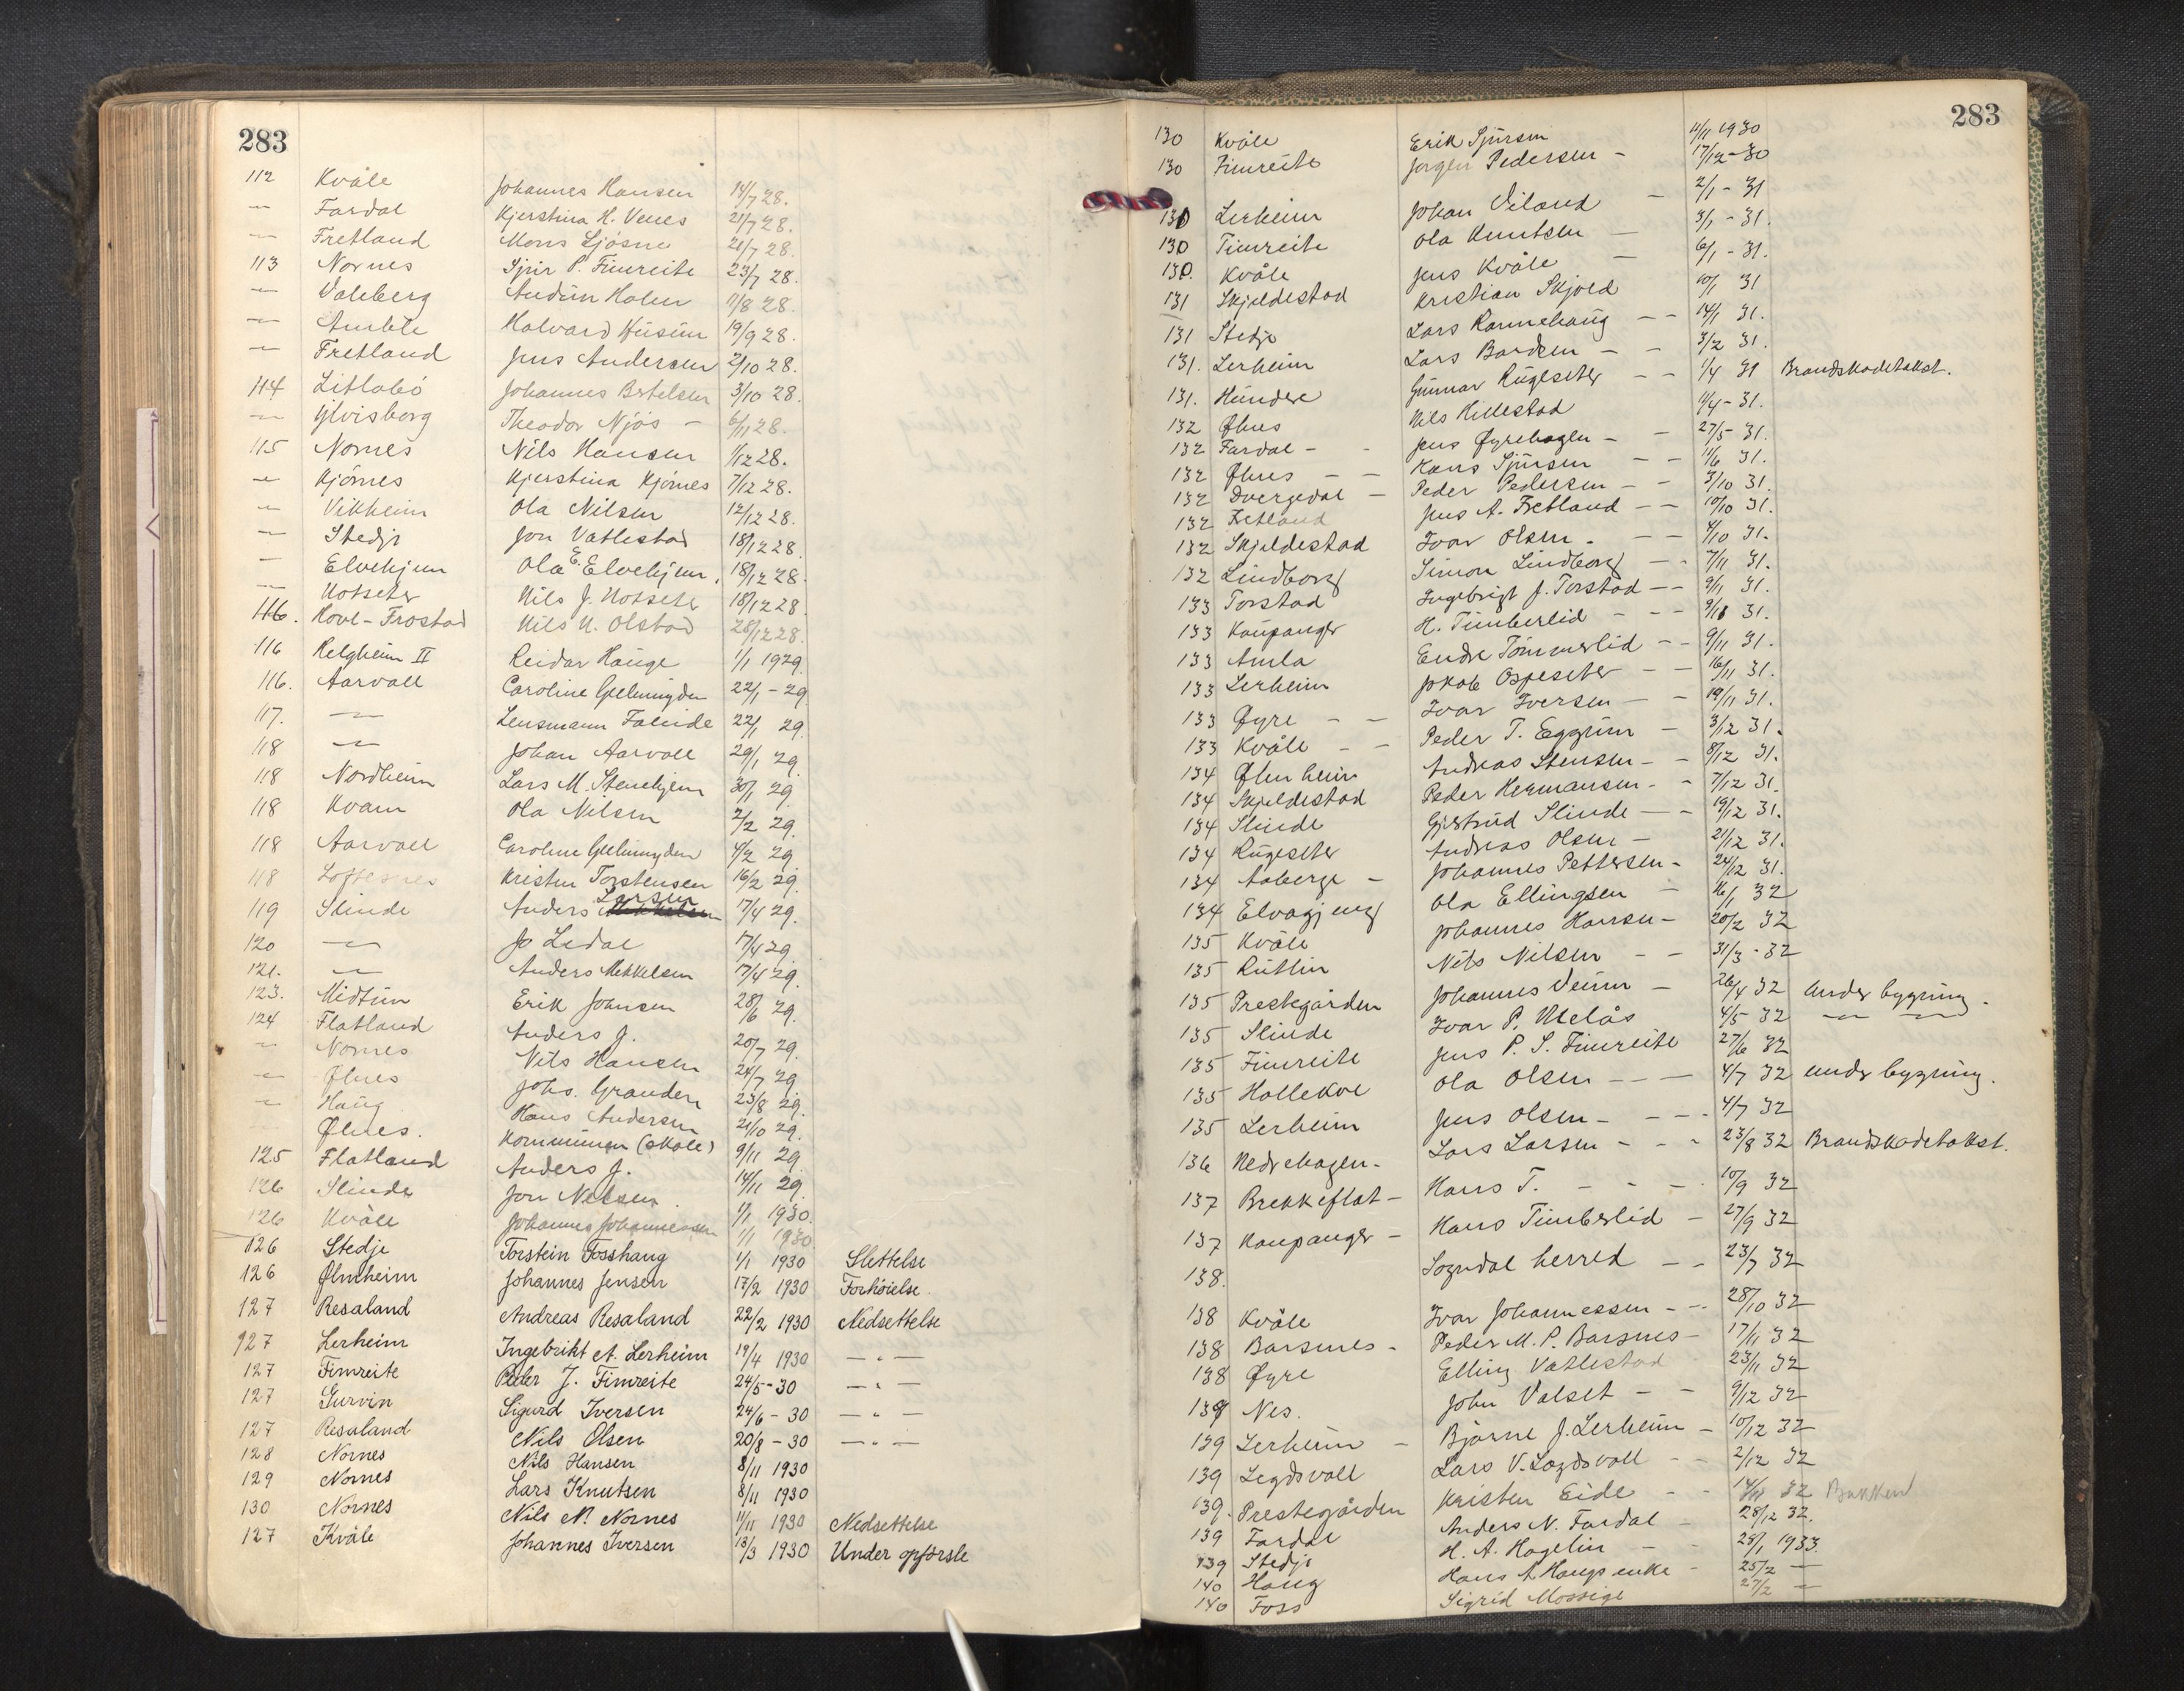 283
112 Kvåle Johannes Hansen 14/7 28.
— Fardal Kjerstina H. Venes 21/7 28.
— Fretland Mons Ljösne 21/7 28.
113 Nornes Sjur P. Fimreite 23/7 28.
— Valeberg Audün Holen 11/8 28.
— Amble Halvard Hüsüm 19/9 28.
— Fretland Jens Andersen 2/10 28.
114 Litlabö Johannes Bertelsen 3/10 28.
— Ylvisborg Theodor Njös — 6/11 28.
115 Nornes Nils Hansen 1/12 28.
— Kjörnes Kjerstina Kjörnes 7/12 28.
— Vikheim Ola Nilsen 12/12 28.
— Stedje Jon Vatlestad 18/12 28
— Elvehjem Ola E. Elvehjem. 18/12 28.
— Notseter Nils J. Notsete 18/12 28
116. Hovl-Frostad Nils N. Olstad 28/12 28.
116 Helgheim II Reidar Haüge 1/1 1929.
116. Aarvoll Caroline Gjelmyden 22/1 - 29
117. — Lensmann Faleide 22/1 29.
118 — Johan Aarvoll 29/1 29.
118 Nordheim Lars M. Stenehjem 30/1 29
118 Kvam Ola Nilsen 2/2 29.
118 Aarvoll Caroline Gjelmyden 4/2 29.
118 Loftesnes Kristen Torstensen 16/2 29.
119 Slinde Anders Larsen 17/4 29.
120 — Jo Lidal 17/4 29.
121. — Anders Mikkelsen 17/4 29.
123. Midtün Erik Johnsen 28/6 29.
124 Flatland Anders J. 20/7 29.
— Nornes Nils Hansen 24/7 29
— Ølnes Johs. Granden 23/8 29.
— Haüg Hans Andersen 21/10 29.
Ølnes. Kommünen (skole) 9/11 29
125 Flatland Anders J. 14/11 29.
126 Slinde Jon Nilsen. 1/1 1930.
126 Kvåle Johannes Johannessen 1/1 1930
126 Stedje Torstein Fosshaug 1/1 1930 Slettelse
126 Ølmheim Johannes Jensen 17/2 1930 Forhöielse.
127 Resaland Andreas Resaland 22/2 1930 Nedsettelse
127 Lerheim Ingebrikt A. Lerheim 19/4 1930 — " —
127 Fimreite Peder J. Fimreite 24/5 - 30 — " —
127 Gurvin Sigurd Iversen 24/6 - 30 — " —
127 Resaland Nils Olsen 20/8 - 30 — " —
128 Nornes Nils Hansen 8/11 1930
129 Nornes Lars Knutsen 8/11 1930
130 Nornes Nils N. Nornes 11/11 1930 Nedsettelse
127 Kvåle Johannes Iversen 13/3 1930 Under opförsle
283
130 Kvåle Erik Sjürsen 11/11 1930
130 Fimreite Jørgen Pedersen — 17/12 - 30
130 Lerheim Johan Eiland — 2/1 - 31
130 Fimreite Ola Knutsen — 3/1 - 31.
130. Kvåle Jens Kvåle — 6/1 - 31.
131 Skjeldestad Kristian Skjold 10/1 31
131 Stedje Lars Rannehaüg — — 14/1 31.
131. Lerheim Lars Bardsen — — 3/2 31.
131. Hündere Günnar Rügseter — — 1/4 31 Brandskadetakst.
132 Ølnes Nils Hillestad 11/4 - 31.
132 Fardal — Jens Øyrehagen — — 27/5 31.
132 Ølnes — — Hans Sjürsen — — 11/6 31.
132 Dvergedal — Peder Pedersen — — 3/10 31.
132 Fretland Jens A. Fretland — — 10/10 31.
132 Skjeldestad Ivar Olsen. — — 4/10 31.
132 Lindborg Simon Lindborg — — 7/11 31.
133 Torstad Ingebrigt J. Torstad — — 9/11 31.
133 Kaupanger H. Timberlid — — — 9/11 31.
133 Amla Endre Tömmerlid — — 9/11 31.
133 Lerheim Jakob Ospeseter — — 16/11 31.
133 Øyre — — Ivar Iversen — — 19/11 31.
133 Kvåle — — Peder T. Eggüm — 3/12 31.
134 Ølmheim Andreas Stensen — — 8/12 31.
134 Skjeldestad Peder Hermansen — — 7/12 31.
134 Slinde Gjertrüd Slinde — — 19/12 31.
134 Rügseter Andreas Olsen — 21/12 31.
134 Aaberge — Johannes Pettersen — 24/12 31.
134 Elvagjeng Ola Ellingsen — 16/1 32
135 Kvåle Johannes Hansen — 20/2 32
135 Rütlin Nils Nilsen — — 31/3 - 32
135 Prestegården Johannes Veüm — 26/4 32 Under bygning.
135 Slinde Ivar P. Melås 4/5 32 — —
135 Fimreite Jens P. S. Fimreite 27/6 32
135 Hollekve Ola Olsen — — — 4/7 32 Under bygning.
135 Lerheim Jens Olsen — — — 4/7 32
136 Nedrehagen. Lars Larsen — — 23/8 32 Brandskadetakst.
137 Brekkeflat — Hans T. — — — 10/9 32
137 Kaupanger — Hans Timberlid — 27/9 32
138. Sogndal herred — — 23/7 32
138 Kvåle Ivar Johannessen — — 28/10 32
138 Barsnes — Peder M. P. Barsnes — 17/11 32
138 Øyre Elling Vatlestad 23/11 32
139 Nes. John Valset — — 9/12 32
139 Lerheim — Bjarne J. Lerheim — 10/12 32
139 Legdsvoll Lars V. Legdsvoll — — 2/12 32
139. Prestegården Kristen Eide — — 14/11 32 Bakken
139 Fardal Anders N. Fardal — 28/12 32.
139 Stedje H. A. Hagelin — — 28/1 1933.
140 Haug Hans A. Haugs enke — 25/2 —
140 Foss Sigrid Mossige 27/2 —